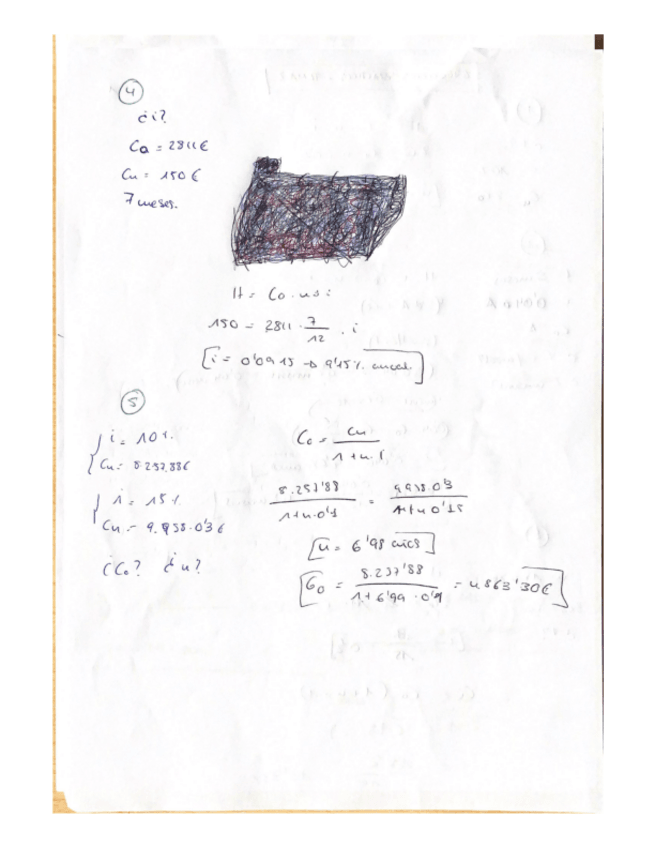 4
¿i?
Co = 2811€
Cn = 150€
7 meses.
It = Co · n · i
150 = 2811 · 7/12 · i
i = 0'0915 → 9'15% anual
5
i = 10%
Cn = 8.257.88€
i = 15%
Cn = 9.938.0'3€
¿Co? ¿n?
Co = Cn / 1+n·i
8.257'88 / 1+n·0'1 = 9938.0'3 / 1+n 0'15
n = 6'98 años
Co = 8.237'88 / 1+6'99 · 0'1 = 4.863'30€